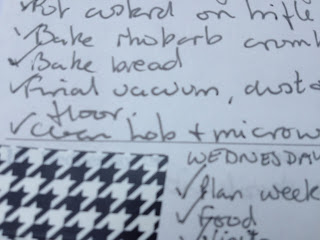 ✓Put custard on trifle
✓Bake rhubarb crumb
✓Bake bread
✓Final vacuum, dust &
floor.
✓Clean hob + microw
WEDNESDAY
✓Plan week
✓Food